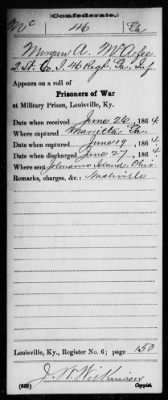 (Confederate.)
Mc 46 Ga
Morgan A. McAfee
2 Lt. Co. I. 46 Regt. Ga. Inf.
Appears on a roll of
Prisoners of War
at Military Prison, Louisville, Ky.
Date when received June 26, 1864
Where captured Marietta Ga
When captured June 19, 1864
Date when discharged June 27, 1864
Where sent Johnsons Island Ohio
Remarks, charges, &c.: Nashville
Louisville, Ky., Register No. 6; page 150
J. W. Wilkinson